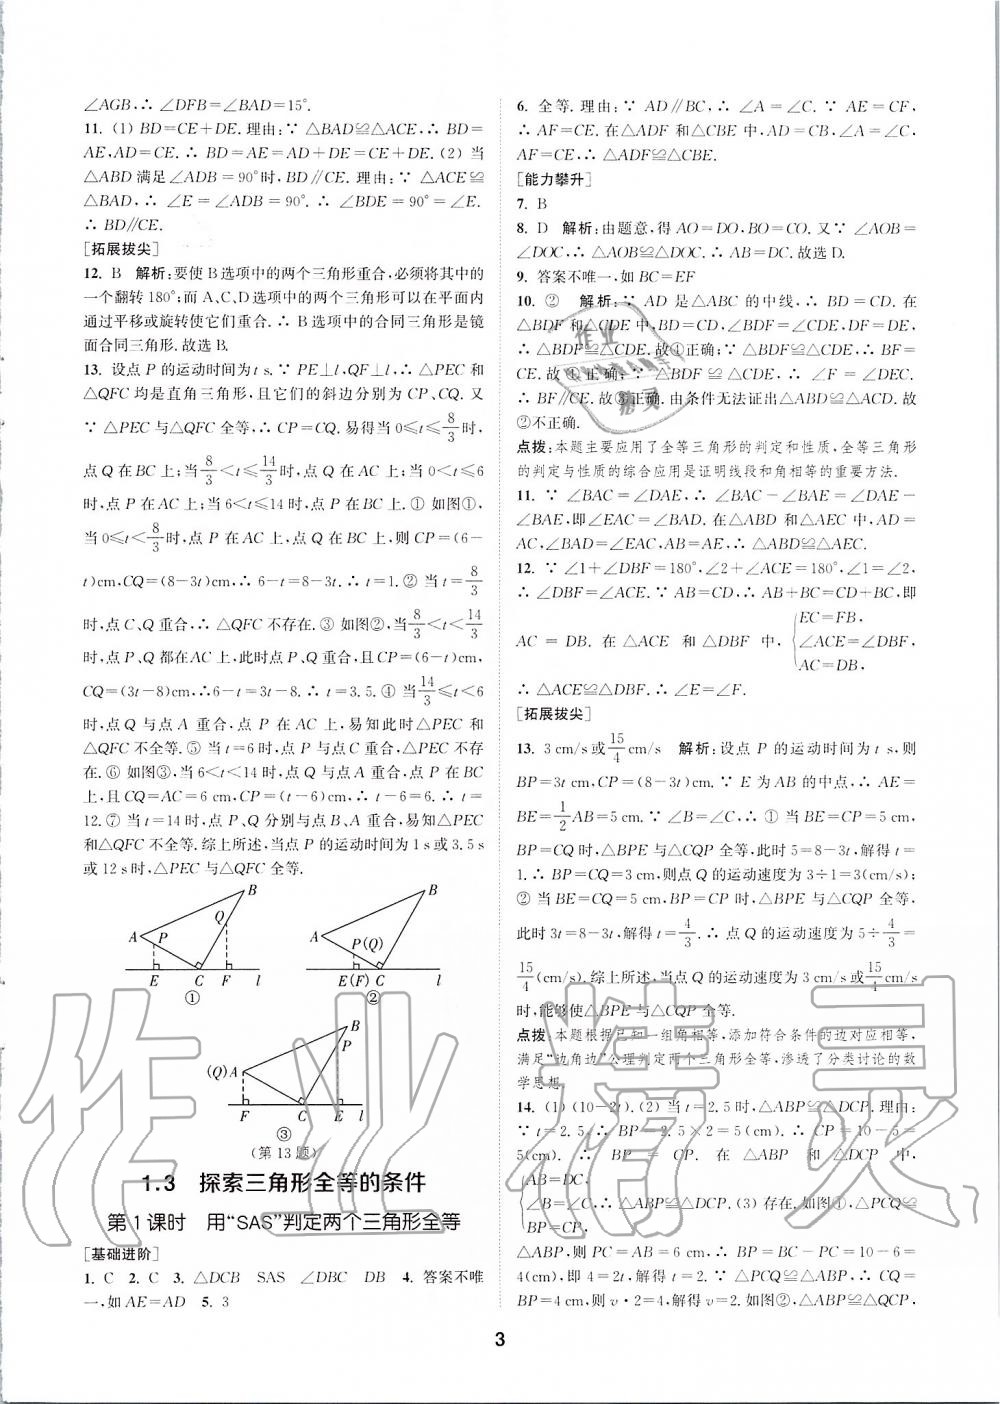 ∠AGB,∴ ∠DFB=∠BAD=15°.
11. (1) BD=CE+DE. 理由:∵ △BAD≌△ACE,∴ BD=
AE,AD=CE.∴ BD=AE=AD+DE=CE+DE. (2) 当
△ABD 满足∠ADB = 90°时,BD∥CE. 理由:∵ △ACE≌
△BAD,∴ ∠E = ∠ADB = 90°. ∴ ∠BDE = 90° = ∠E.
∴ BD∥CE.
[拓展拔尖]
12. B 解析:要使 B 选项中的两个三角形重合,必须将其中的
一个翻转 180°;而 A、C、D 选项中的两个三角形可以在平面内
通过平移或旋转使它们重合.∴ B 选项中的合同三角形是镜
面合同三角形.故选 B.
13. 设点 P 的运动时间为 t s. ∵ PE⊥l,QF⊥l,∴ △PEC 和
△QFC 均是直角三角形,且它们的斜边分别为 CP、CQ. 又
∵ △PEC 与△QFC 全等,∴ CP=CQ. 易得当 0≤t≤8/3时,
点 Q 在 BC 上;当8/3<t≤14/3时,点 Q 在 AC 上;当 0<t≤6
时,点 P 在 AC 上;当 6<t≤14 时,点 P 在 BC 上.① 如图①,
当 0≤t<8/3时,点 P 在 AC 上,点 Q 在 BC 上,则 CP=(6-
t)cm,CQ=(8-3t)cm,∴ 6-t=8-3t.∴ t=1.② 当 t=8/3
时,点 C、Q 重合,∴ △QFC 不存在.③ 如图②,当8/3<t<14/3
时,点 P、Q 都在AC 上,此时点 P、Q 重合,且 CP=(6-t)cm,
CQ=(3t-8)cm,∴6-t=3t-8.∴ t=3.5.④ 当14/3≤t<6
时,点 Q 与点 A 重合,点 P 在 AC 上,易知此时△PEC 和
△QFC 不全等.⑤ 当 t=6时,点 P 与点C 重合,△PEC 不存
在.⑥ 如图③,当 6<t<14 时,点 Q 与点 A 重合,点 P 在 BC
上,且 CQ=AC=6 cm,CP=(t-6)cm,∴ t-6=6.∴ t=
12.⑦ 当 t=14 时,点 P、Q 分别与点 B、A 重合,易知△PEC
和△QFC 不全等.综上所述,当点 P 的运动时间为 1 s或 3.5 s
或 12 s 时,△PEC 与△QFC 全等.
A P B Q E C F l
①
A B P(Q) E(F) C l
②
(Q)A B P F C E l
③
(第 13 题)
1.3 探索三角形全等的条件
第 1 课时 用“SAS”判定两个三角形全等
[基础进阶]
1. C 2. C 3. △DCB SAS ∠DBC DB 4. 答案不唯
一,如 AE=AD 5. 3
6. 全等. 理由:∵ AD∥BC,∴ ∠A = ∠C. ∵ AE = CF,
∴ AF=CE. 在△ADF 和△CBE 中,AD=CB,∠A=∠C,
AF=CE,∴ △ADF≌△CBE.
[能力攀升]
7. B
8. D 解析:由题意,得 AO=DO,BO=CO.又∵ ∠AOB=
∠DOC,∴ △AOB≌△DOC.∴ AB=DC.故选 D.
9. 答案不唯一,如 BC=EF
10. ② 解析:∵ AD 是△ABC 的中线,∴ BD=CD. 在
△BDF 和△CDE 中,BD=CD,∠BDF=∠CDE,DF=DE,
∴ △BDF≌△CDE.故④正确;∵ △BDF≌△CDE,∴ BF=
CE.故①正确;∵ △BDF ≌△CDE,∴ ∠F = ∠DEC.
∴ BF∥CE.故③正确.由条件无法证出△ABD≌△ACD.故
②不正确.
点拨:本题主要应用了全等三角形的判定和性质,全等三角形
的判定与性质的综合应用是证明线段和角相等的重要方法.
11. ∵ ∠BAC=∠DAE,∴ ∠BAC-∠BAE=∠DAE-
∠BAE,即∠EAC=∠BAD. 在△ABD 和△AEC 中,AD=
AC,∠BAD=∠EAC,AB=AE,∴ △ABD≌△AEC.
12. ∵ ∠1+∠DBF=180°,∠2+∠ACE=180°,∠1=∠2,
∴ ∠DBF=∠ACE.∵ AB=CD,∴ AB+BC=CD+BC,即
AC = DB. 在△ACE 和△DBF 中, {EC=FB, ∠ACE=∠DBF, AC=DB,
∴ △ACE≌△DBF.∴ ∠E=∠F.
[拓展拔尖]
13. 3 cm/s或15/4 cm/s 解析:设点 P 的运动时间为 t s,则
BP=3t cm,CP=(8-3t)cm.∵ E 为 AB 的中点,∴ AE=
BE=1/2AB=5 cm.∵ ∠B=∠C,∴ ① 当 BE=CP=5 cm,
BP=CQ 时,△BPE 与△CQP 全等,此时 5=8-3t,解得 t=
1.∴ BP=CQ=3 cm,则点 Q 的运动速度为 3÷1=3(cm/s);
② 当 BE=CQ=5 cm,BP=CP 时,△BPE 与△CQP 全等,
此时 3t=8-3t,解得 t=4/3.∴ 点 Q 的运动速度为 5÷4/3=
15/4(cm/s).综上所述,当点 Q 的运动速度为 3 cm/s 或15/4cm/s
时,能够使△BPE 与△CQP 全等.
点拨:本题根据已知一组角相等,添加符合条件的边对应相等,
满足“边角边”公理判定两个三角形全等,渗透了分类讨论的数
学思想.
14. (1) (10-2t). (2) 当 t=2.5时,△ABP≌△DCP. 理由:
∵ t=2.5,∴ BP=2.5×2=5(cm). ∴ CP=10-5=
5(cm). ∴ BP = CP. 在 △ABP 和 △DCP 中,
{AB=DC, ∠B=∠C, BP=CP, ∴ △ABP≌△DCP. (3) 存在.如图①,△PCQ≌
△ABP,则 PC=AB=6 cm,∴ BP=BC-PC=10-6=
4(cm),即 4=2t,解得 t=2.∵ △PCQ≌△ABP,∴ CQ=
BP=4 cm,则 v·2=4,解得 v=2.如图②,△ABP≌△QCP,
3
作业精灵
作业
精灵